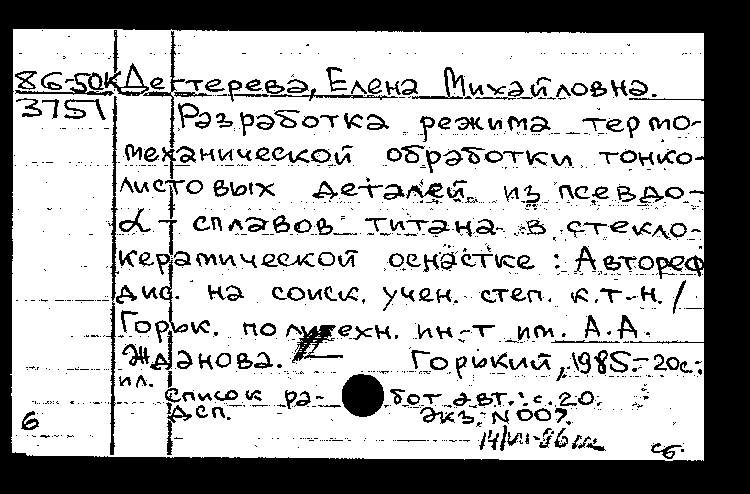 86-50К Дегтерева, Елена Михайловна.
3751 Разработка режима термо-
механической обработки тонко-
листовых деталей из псевдо-
α - сплавов титана в стекло-
керамической оснастке: Автореф
дис. на соиск. учен. степ. к.т.н. /
Горьк. политехн. ин-т им. А.А.
Жданова. Горький, 1985.- 20с.:
ил.
Список работ авт.: с.20.
Дсп. Экз. N 007.
6
сб.